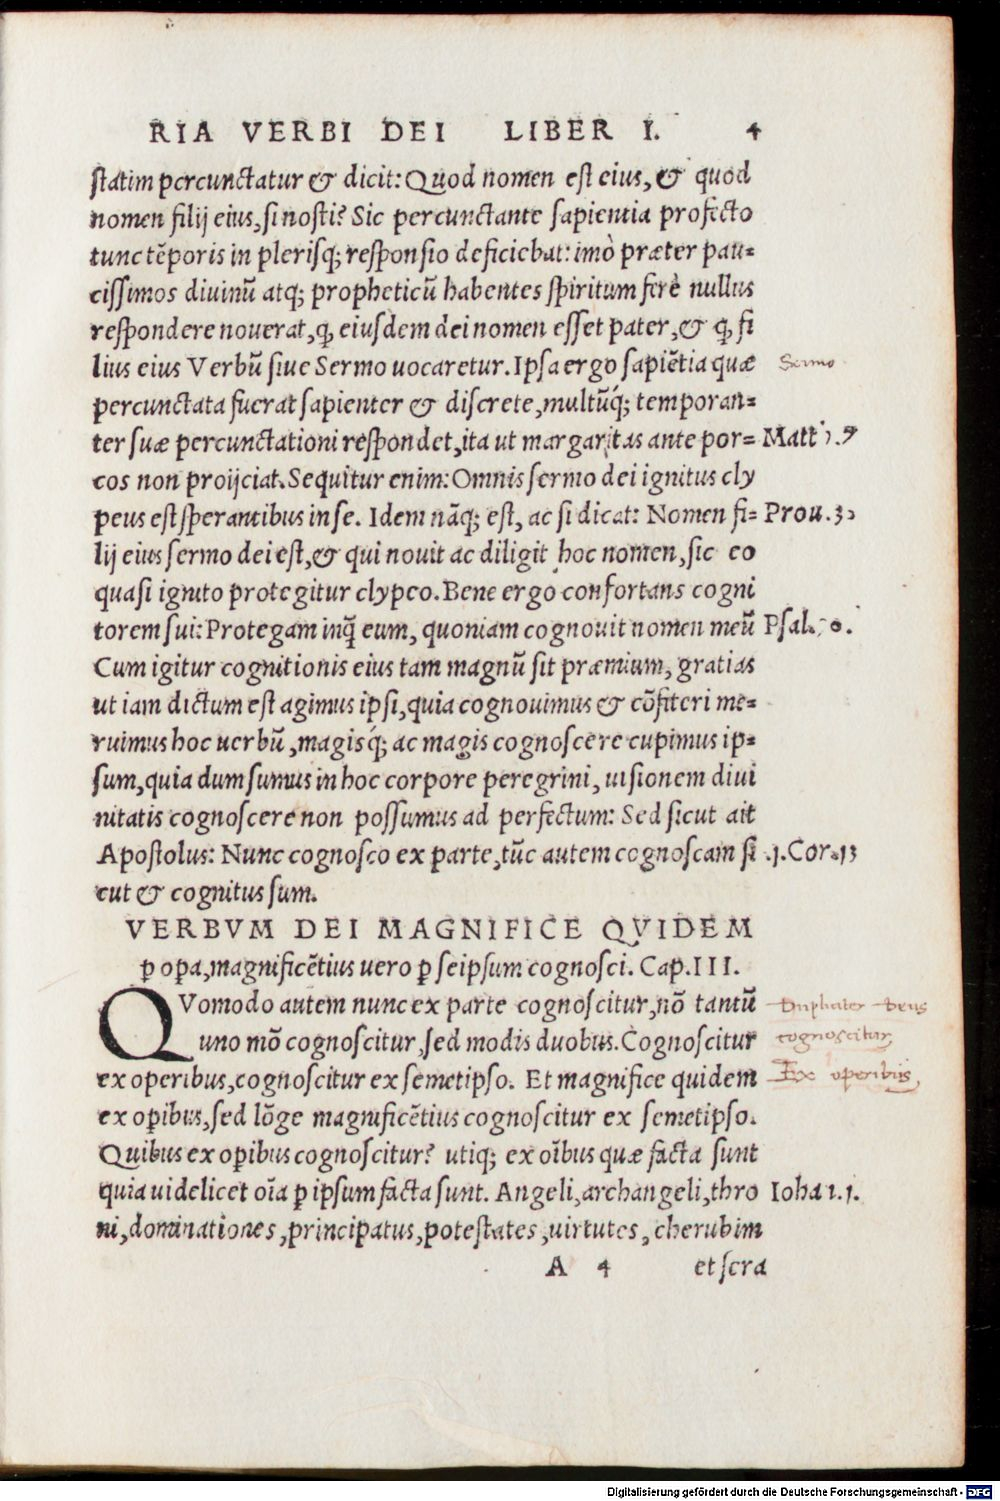 RIA VERBI DEI LIBER I. 4
statim percunctatur & dicit: Quod nomen est eius, & quod
nomen filij eius, si nosti? Sic percunctante sapientia profecto
tunc tēporis in plerisq; responsio deficiebat: imò præter pau=
cissimos diuinū atq; propheticū habentes spiritum ferè nullus
respondere nouerat, ꝙ eiusdem dei nomen esset pater, & ꝙ fi
lius eius Verbū siue Sermo uocaretur. Ipsa ergo sapiētia quæ
Sermo
percunctata fuerat sapienter & discrete, multūq́; temporan=
ter suæ percunctationi respondet, ita ut margaritas ante por= Matth.7
cos non proijciat. Sequitur enim: Omnis sermo dei ignitus cly
peus est sperantibus in se. Idem nāq; est, ac si dicat: Nomen fi= Prou.30
lij eius sermo dei est, & qui nouit ac diligit hoc nomen, sic eo
quasi ignito protegitur clypeo. Bene ergo confortans cogni
torem sui: Protegam inq̄ eum, quoniam cognouit nomen meū Psal. 0.
Cum igitur cognitionis eius tam magnū sit præmium, gratias
ut iam dictum est agimus ipsi, quia cognouimus & cōfiteri me=
ruimus hoc uerbū, magisq́; ac magis cognoscere cupimus ip=
sum, quia dum sumus in hoc corpore peregrini, uisionem diui
nitatis cognoscere non possumus ad perfectum: Sed sicut ait
Apostolus: Nunc cognosco ex parte, tūc autem cognoscam si .1.Cor.13
cut & cognitus sum.
VERBVM DEI MAGNIFICE QVIDEM
ꝑ oꝑa, magnificētius uero ꝑ seipsum cognosci. Cap.III.
QVomodo autem nunc ex parte cognoscitur, nō tantū
Dupliciter Deus
uno mō cognoscitur, sed modis duobus. Cognoscitur
cognoscitur
ex operibus, cognoscitur ex semetipso. Et magnifice quidem
Ex operibus
ex oꝑibus, sed lōge magnificētius cognoscitur ex semetipso.
Quibus ex oꝑibus cognoscitur? utiq; ex oībus quæ facta sunt
quia uidelicet oīa ꝑ ipsum facta sunt. Angeli, archangeli, thro Ioha 1.1.
ni, dominationes, principatus, potestates, uirtutes, cherubim
A 4 et sera
Digitalisierung gefördert durch die Deutsche Forschungsgemeinschaft - DFG